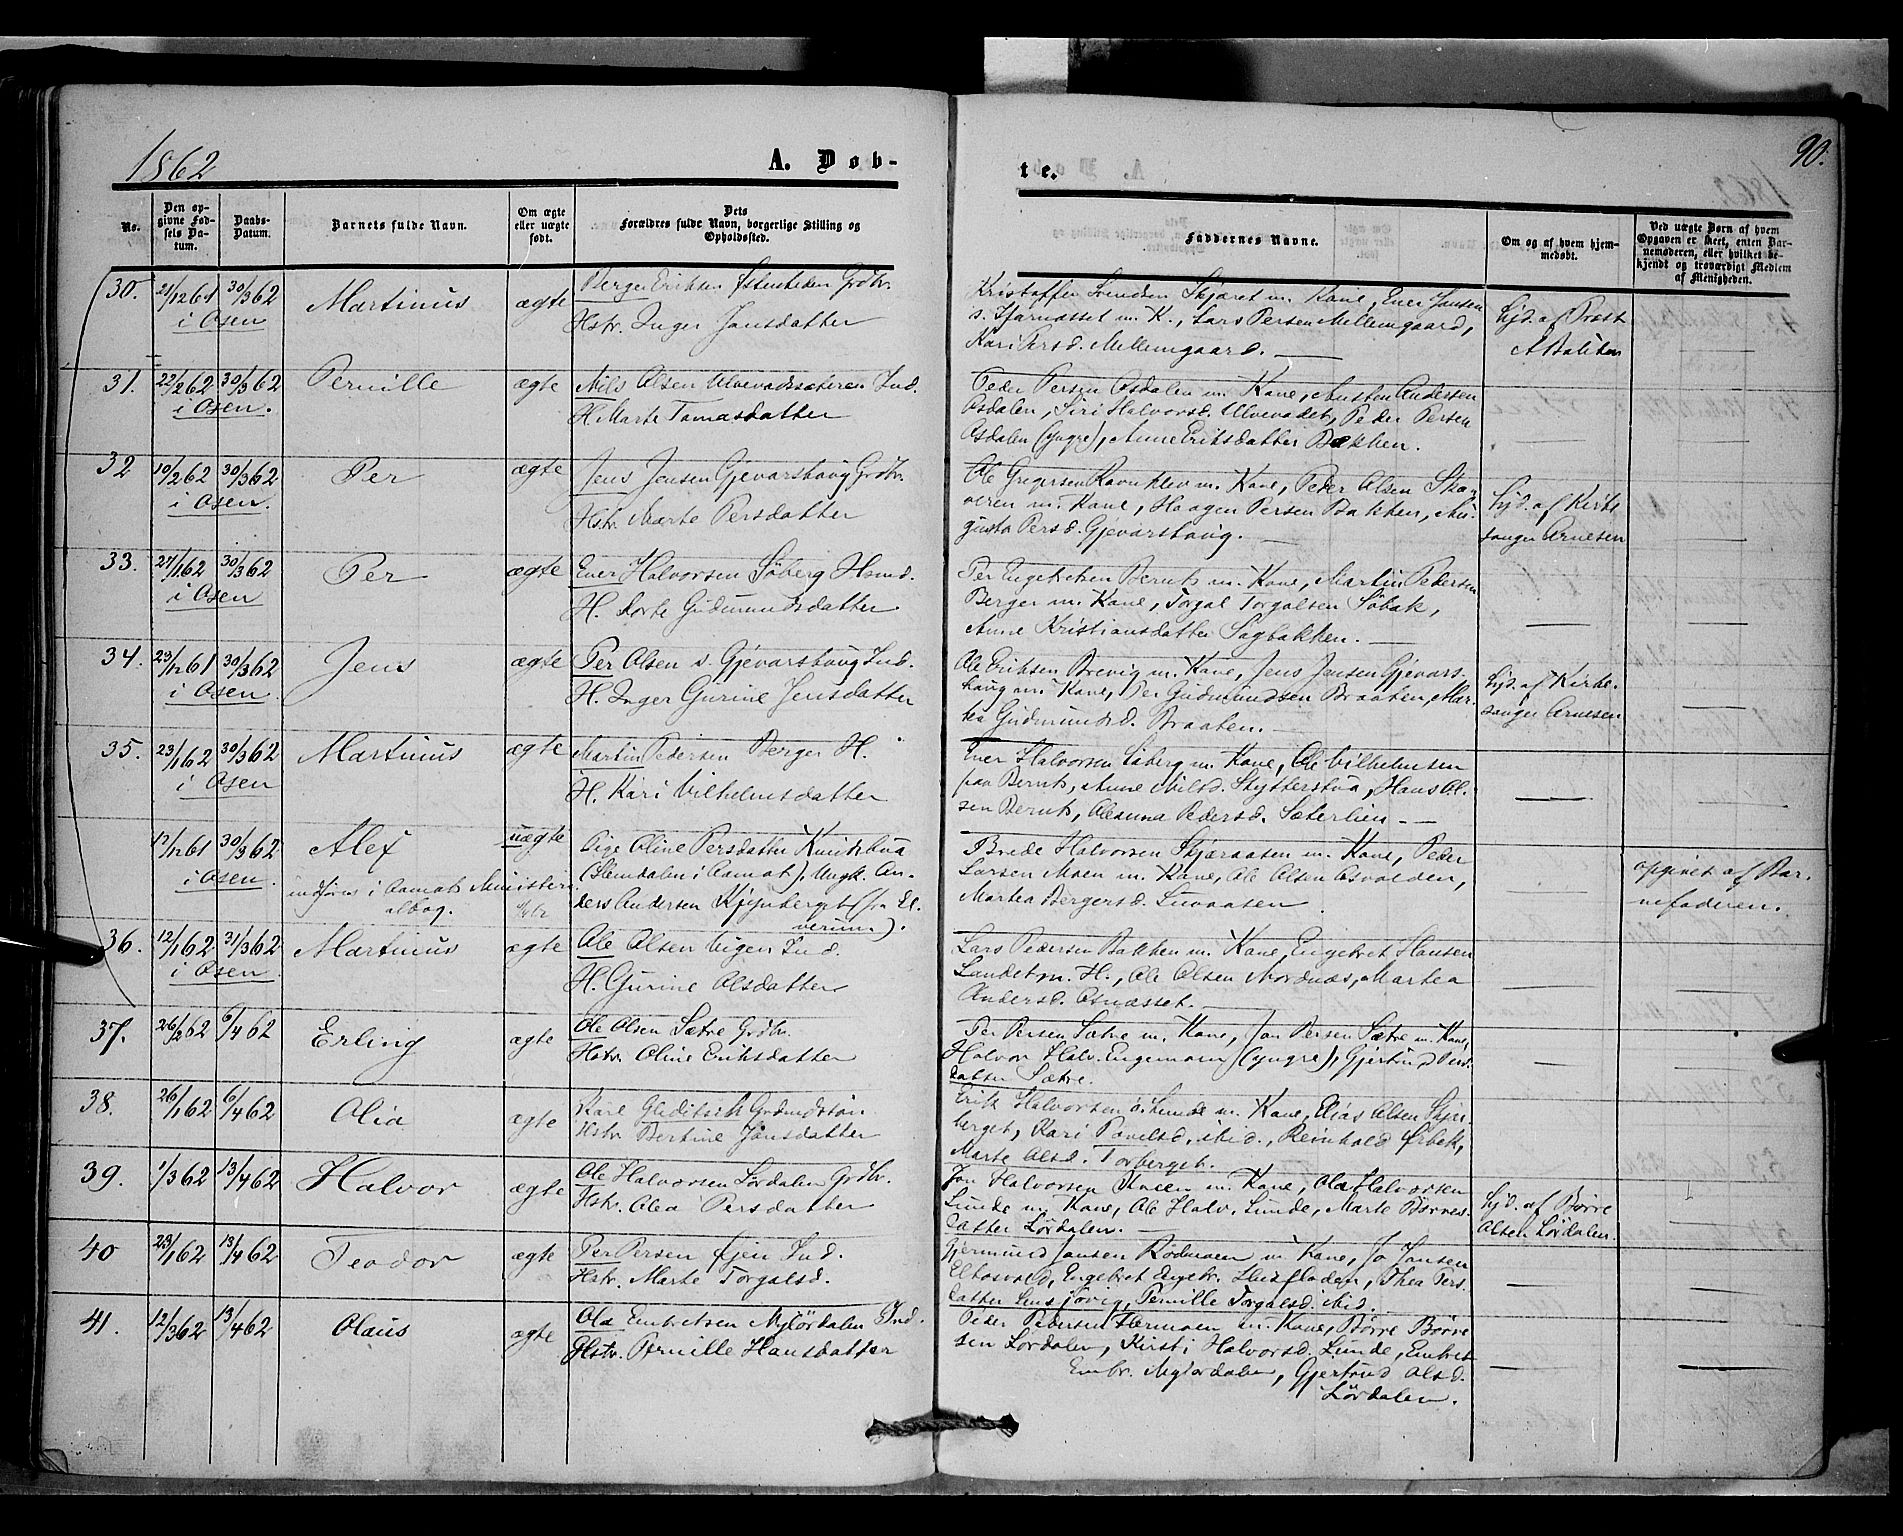 1862
A. Døb-
te.
90.
No.
Den op-
givne Fød-
sels Da-
tum.
Daabs-
Datum.
Barnets fulde Navn.
Om ægte
eller uægte
født.
Dets
Forældres fulde Navn, borgerlige Stilling og
Opholdssted.
Faddernes Navne.
Om og af hvem hjem-
medøbt.
Ved uægte Børn af hvem
Opgaven er skeet, enten Bar-
nemoderen, eller hvilket be-
kjendt og troværdigt Medlem
af Menigheden.
30. 21/12 61 30/3 62 Martinus ægte Berger Eriksen Grdbr.
i Osen Hstr. Inger Jonsdatter
Kristoffer Svendsen Skjæret m. Kone, Ener Jonsen
m. K., Lars Persen Mellemgaard,
Kari Persd. Mellemgaard. —
hjd. af Præst
31. 22/2 62 30/3 62 Pernille ægte Nils Olsen Ulvevadsæteren Ind.
i Osen. H. Marte Tomasdatter
Peder Persen Osdalen m. Kone, Austen Andersen
Osdalen, Siri Halvorsd. Ulvevadet, Peder Persen
Osdalen (yngre), Anne Eriksdatter Bækken.
32 10/2 62 30/3 62 Per ægte Jens Jensen Gjevarshaug Grdbr.
i Osen. Hstr. Marte Persdatter
Ole Gregersen Ravnklev m. Kone, Peder Olsen Skæ-
veren m. Kone, Haagen Persen Bakken, Au-
gusta Persd. Gjevarshaug. —
hjd. af Kirke
sanger Arnesen
33. 27/1 62 30/3 62 Per ægte Ener Halvorsen Søberg Hsmd.
i Osen H. Dorte Gudmundsdatter
Per Engebretsen Beruts m. Kone, Martin Pedersen
Berger m. Kone, Torgal Torgalsen Søbak,
Anne Kristiansdatter Sagbakken. —
34. 29/12 61 30/3 62 Jens ægte Per Olsen s. Gjevarshaug Ind.
i Osen. H. Inger Gurine Jensdatter
Ole Eriksen Brevig m. Kone, Jens Jensen Gjevars-
haug m. Kone, Per Gudmundsen Braaten, Mar-
tea Gudmundsd. Braaten. —
hjd. af Kirke-
sanger Arnesen
35. 23/1 62 30/3 62 Martinus ægte Martin Pedersen Berger H.
i Osen H. Kari Vilhelmsdatter
Ener Halvorsen Søberg m. Kone, Ole Vilhelmsen
paa Beruts, Anne Nilsd. Skytterstua, Hans Ol-
sen Beruts, Olesuna Pedersd. Sæterlien —
17/12 61 30/3 62 Alex uægte Pige Oline Persdatter
i Osen indføres i Aamots Ministeri-
albog.
(Slemdalen i Aamot). Ungk. An-
ders Andersen Kjynberget (fra El-
verum).
Brede Halvorsen Skjæraasen m. Kone, Peder
Larsen Moen m. Kone, Ole Olsen Osvolden,
Martea Bergersd.
opgivet af Bar-
nefaderen.
36. 12/1 62 31/3 62 Martinus ægte Ole Olsen Vigen Ind.
i Osen H. Gurine Olsdatter
Lars Pedersen Bakken m. Kone, Engebret Hansen
Landet m. H., Ole Olsen Nordnæs, Martea
Andersd. Osnæsset.
37. 26/2 62 6/4 62 Erling ægte Ole Olsen Sætre Grdbr.
Hstr. Oline Eriksdatter
Per Persen Sætre m. Kone, Jon Persen Sætre m. Kone,
Halvor Halv. Engemoen (yngre), Gjertrud Pers-
datter Sætre.
38. 26/1 62 6/4 62 Olia ægte Karl Gleditsch
Hstr. Bertine Jonsdatter
Erik Halvorsen ø. Lunde m. Kone, Elias Olsen Skjær-
berget, Kari Povelsd. ibid., Reinhold Ørbæk,
Marte Olsd. Torberget.
39. 1/3 62 13/4 62 Halvor ægte Ole Halvorsen Lørdalen Grdbr.
Hstr. Olea Persdatter
Jon Halvorsen m. Kone, Ola Halvorsen
Lunde m. Kone, Ole Halv. Lunde, Marte Børres-
datter Lørdalen. —
hjd. af Børre
Olsen Lørdalen.
40 23/1 62 13/4 62 Teodor ægte Per Persen Ind.
Hstr. Marte Torgalsd.
Gjermund Jonsen Rødmoen m. Kone, Jo Jonsen
Engebret Engebr. Thea Pers-
datter Pernille Torgalsd. ibid.
41. 12/3 62 13/4 62 Olaus ægte Ola Embretsen Nylørdalen Ind.
Hstr. Pernille Hansdatter
Peder Pedersen m. Kone, Børre Børre-
sen Lørdalen, Kirsti Halvorsd. Lunde, Embret
Embr. Nylørdalen, Gjertrud Olsd.
Lørdalen.